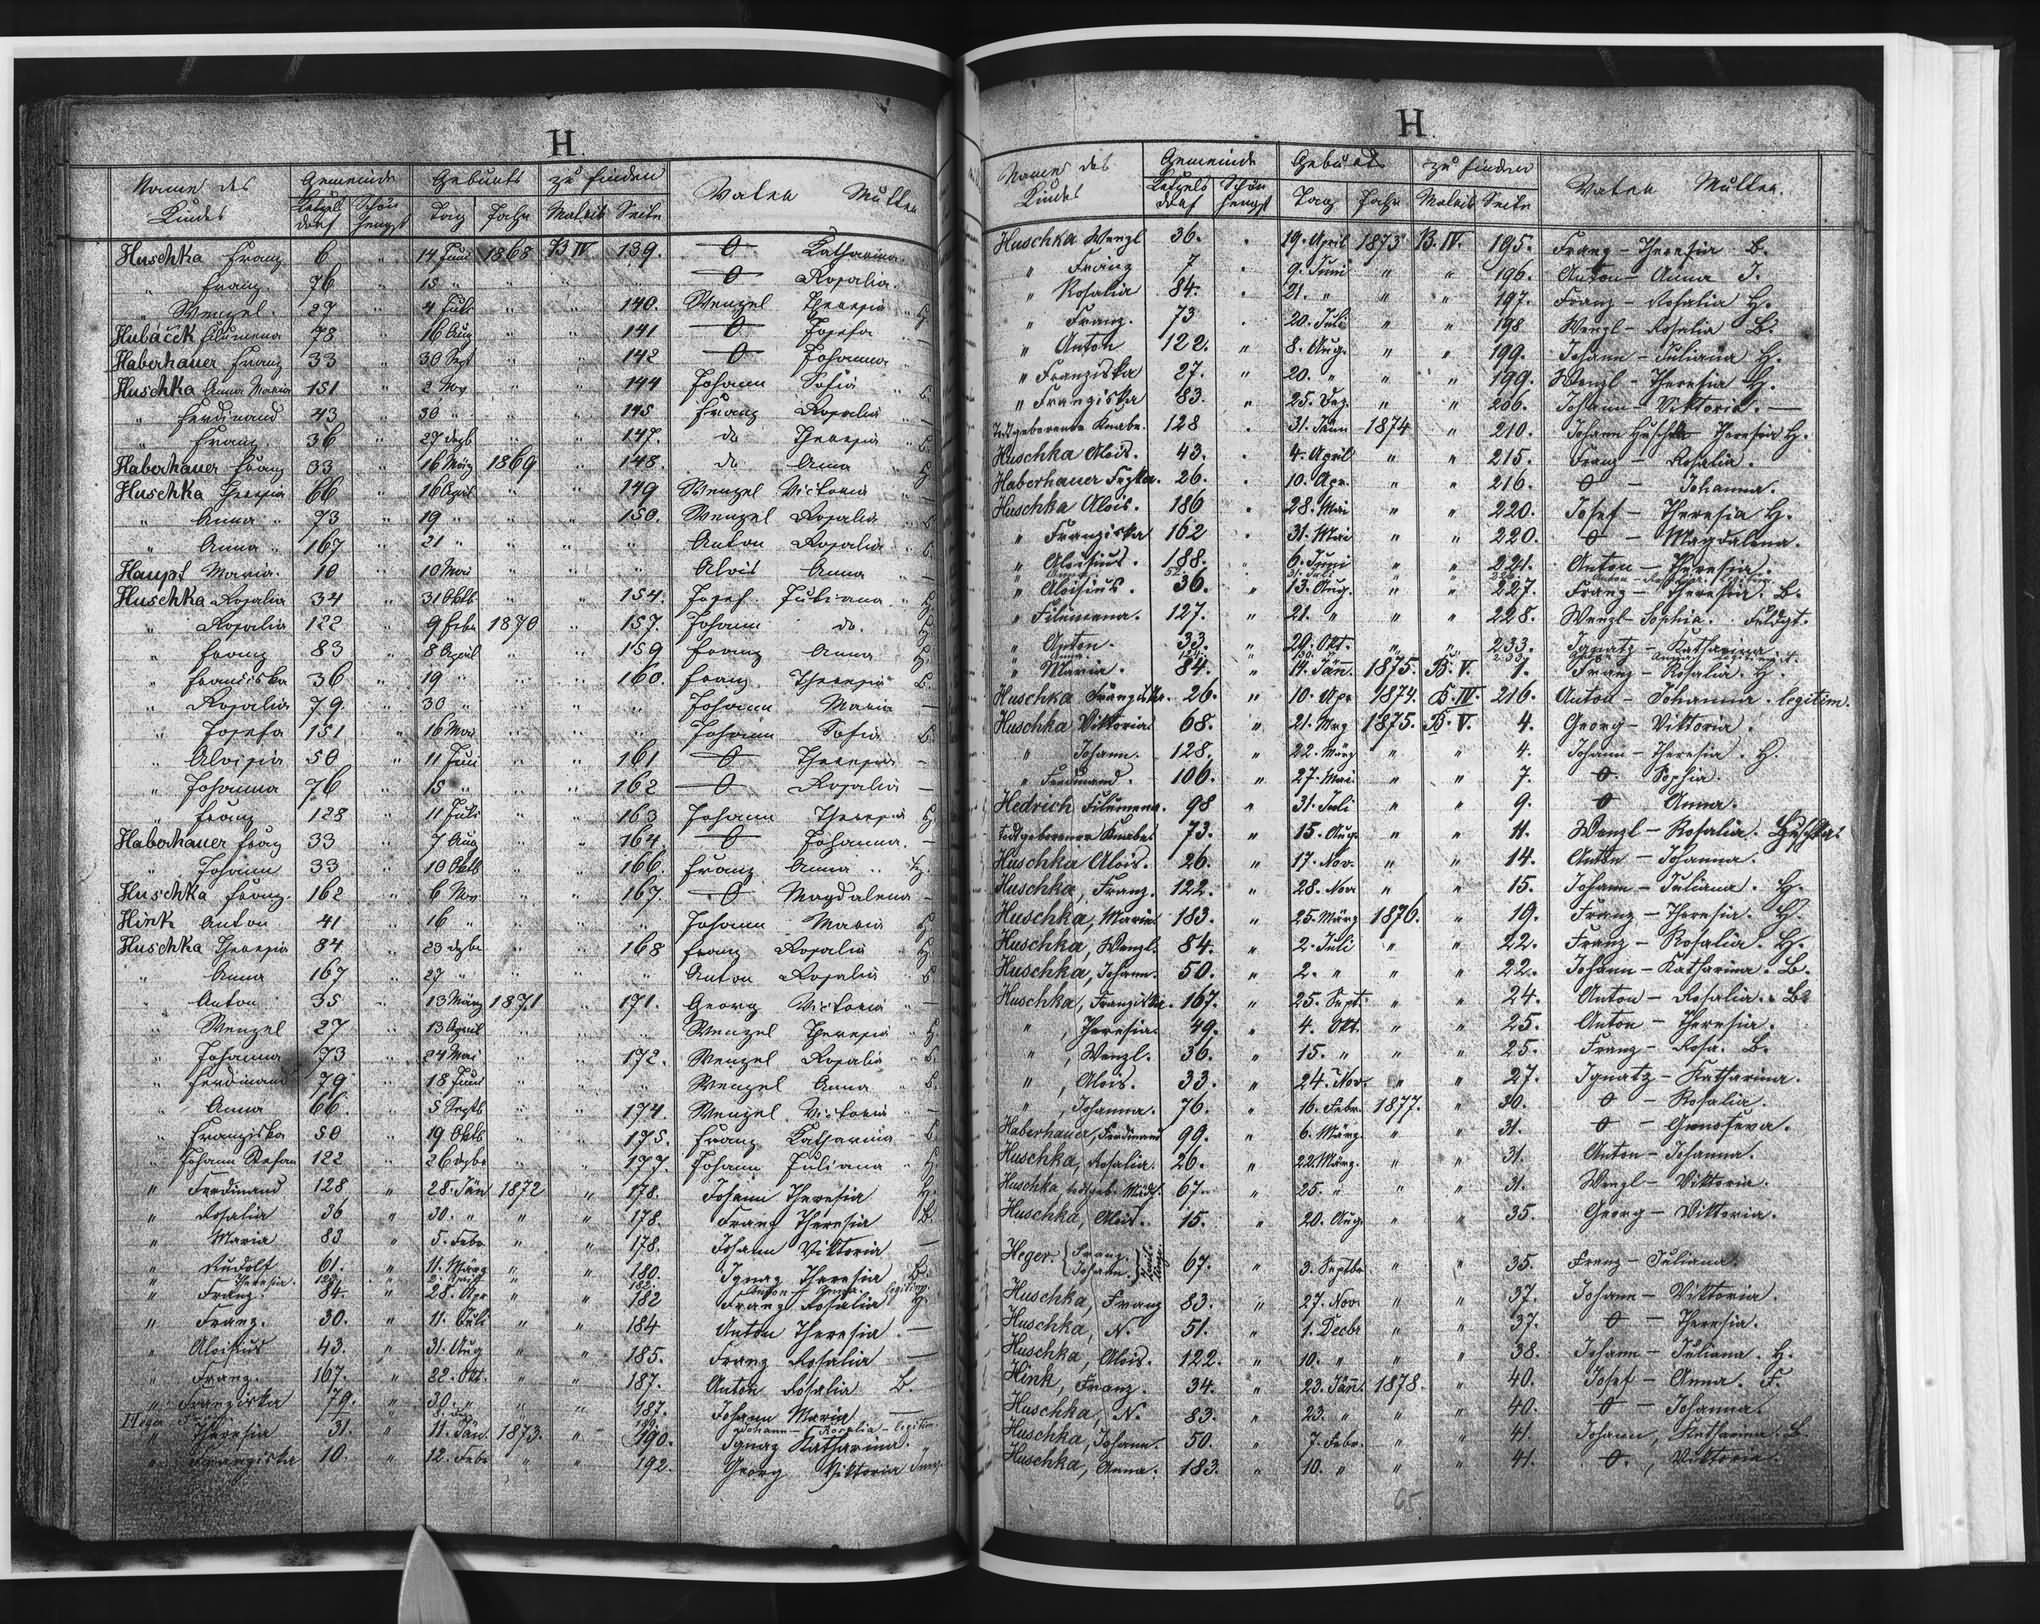 H.
Name des Kindes Gemeinde Geburts zu finden Vater Mutter
Letzels dorf Schön hengst Tag Jahr Matrik Seite
Huschka Franz 6 " 14 Juni 1868 B IV 139. O Katharina.
" Franz. 76 " 15 " " " " O Rosalia.
" Wenzel. 27 " 4 Juli " " 140. Wenzel Theresia " H
Hubáček Filumena 78 " 16 Aug " " 141 O Josefa " —
Haberhauer Franz 33 " 30 Sept " " 142 O Johanna " —
Huschka Anna Maria 151 " 2 Nov " " 144 Johann Sofia " B.
" Ferdinand 43 " 30 " " " 145 Franz Rosalia " —
" Franz. 36 " 27 dezb " " 147. do Theresia " B
Haberhauer Franz 33 " 16 März 1869 " 148. do Anna " H
Huschka Theresia 66 " 16 April " " 149 Wenzel Victoria " —
" Anna " 73 " 19 " " " 150. Wenzel Rosalia " B
" Anna " 167 " 21 " " " " Anton Rosalia " B
Haupt Maria. 10 " 10 Mai " " " Alois Anna " —
Huschka Rosalia 34 " 31 Oktb " " 154. Josef Juliana " H
" Rosalia 122 " 9 Febr 1870 " 157. Johann do. H
" Franz 83 " 8 April " " 159 Franz Anna " H
" Franciska 36 " 19 " " " 160. Franz Theresia " B.
" Rosalia 79. " 30 " " " " Johann Maria —
" Josefa 151 " 16 Mai " " " Johann Sofia B
" Aloisia 50 " 11 Juni " " 161 O Theresia —
" Johanna 76 " 15 " " " 162 O Rosalia —
" Franz 128 " 11 Juli " " 163 Johann Theresia H
Haberhauer Franz 33 " 7 Aug " " 164 O Johanna. —
" Johann 33 " 10 Oktb " " 166. Franz Anna " H.
Huschka Franz. 162 " 6 Nov " " 167. O Magdalena —
Hink Anton 41 " 16 " " " " Johann Maria H
Huschka Theresia 84 " 23 dezbr " " 168 Franz Rosalia " H.
" Anna 167 " 27 " " " " Anton Rosalia " B
" Anton 35 " 13 März 1871 " 171. Georg Victoria " —
" Wenzel 27 " 13 April " " " Wenzel Theresia " H
" Johanna 73 " 24 Mai " " 172. Wenzel Rosalia " B.
" Ferdinand 79 " 18 Juni " " " Wenzel Anna " B.
" Anna 66 " 5 Septb " " 174. Wenzel Victoria —
" Franziska 50 " 19 Oktb " " 175. Franz Katharina — B
" Johann Stefan 122 " 26 dezbr " " 177. Johann Juliana " H
" Ferdinand 128 " 28. Jän 1872 " 178. Johann Theresia H.
" Rosalia 36 " 30. " " " 178. Franz Theresia B.
" Maria 83 " 5. Febr " " 178. Johann Viktoria —
" Rudolf 61. " 11. März " " 180. Ignaz Theresia B.
" Theresia. " 2. April " 182. Anton — legitim.
" Franz. 84. " 28. Apr " " 182 Franz Rosalia H.
" Franz. 30. " 11. Juli " " 184 Anton Theresia. —
" Aloisius 43. " 31. Aug " " 185. Franz Rosalia —
" Franz. 167. " 22. Okt. " " 187. Anton Rosalia B.
" Franziska 79. " 30. " " " 187. Johann Maria —
Heger Johann — Rosalia — legitim.
" Theresia 31. " 11. Jän. 1873. " 190. Ignaz Katharina. "
" Franziska 10. " 12. Febr " " 192. Georg Viktoria
H.
Name des Kindes Gemeinde Geburts zu finden Vater Mutter.
Letzels dorf Schön hengst Tag Jahr Matrik Seite
Huschka Wenzl 36. " 19. April 1873 B. IV. 195. Franz — Theresia B.
" Franz 7 " 9. Juni " " 196. Anton — Anna J.
" Rosalia 84. " 21. " " " 197. Franz — Rosalia H.
" Franz. 73 " 20. Juli " " 198 Wenzl — Rosalia B.
" Anton 122. " 8. Aug. " " 199. Johann — Juliana H.
" Franziska 27. " 20. " " " 199. Wenzl — Theresia H.
" Franziska 83. " 25. Dez. " " 206. Johann — Viktoria. —
Todtgeborener Knabe. 128 " 31. Jänn 1874 " 210. Johann Huschka Theresia H.
Huschka Alois. 43. " 4. April " " 215. Franz — Rosalia.
Haberhauer Frzka. 26. " 10. Apr. " " 216. O — Johanna.
Huschka Alois. 186 " 28. Mai " " 220. Josef — Theresia H.
" Franziska 162 " 31. Mai " " 220. O — Magdalena.
" Aloisius. 188. " 6. Juni " " 221. Anton — Theresia.
" Aloisius. 36. " 13. Aug. " " 227. Franz — Theresia. B.
" Filumena. 127. " 21. " " " 228. Wenzl — Sophia. Feldgt.
" Anton. 33. " 29. Okt. " " 233. Ignatz — Katharina.
" Maria. 84. " 14. Jänn. 1875. B. V. 1. Franz — Rosalia. H.
Huschka Franziska. 26. " 10. Apr 1874. B. IV. 216. Anton — Johanna. legitim.
Huschka Viktoria. 68. " 21. Mrz 1875. B. V. 4. Georg — Viktoria.
" Johann. 128. " 22. März " " 4. Johann — Theresia. H.
" Ferdinand. 106. " 27. Mai " " 7. O. Sophia.
Hedrich Filumena. 98 " 31. Juli " " 9. O Anna.
todtgeborener Knabe 73. " 15. Aug. " " 11. Wenzl — Rosalia. Huschka.
Huschka Alois. 26. " 17. Nov. " " 14. Anton — Johanna.
Huschka, Franz. 122. " 28. Nov " " 15. Johann — Juliana. H.
Huschka, Maria. 183. " 25. März 1876. " 19. Franz — Theresia. H.
Huschka, Wenzl. 84. " 2. Juli " " 22. Franz — Rosalia. H.
Huschka, Johann. 50. " 2. " " " 22. Johann — Katharina. B.
Huschka, Franziska. 167. " 25. Sept. " " 24. Anton — Rosalia. B.
" , Theresia. 49. " 4. Okt. " " 25. Anton — Theresia.
" , Wenzl. 36. " 15. " " " 25. Franz — Rosa. B.
" , Alois. 33. " 24. Nov. " " 27. Ignatz — Katharina.
" , Johanna. 76. " 16. Febr. 1877. " 30. O — Rosalia.
Haberhauer, Ferdinand 99. " 6. März. " " 31. O — Genofeva.
Huschka, Rosalia. 26. " 22. März. " " 31. Anton — Johanna.
Huschka, todtgeb. Mädch. 67. " 25. " " " 31. Wenzl — Viktoria.
Huschka, Alois. 15. " 20. Aug. " " 35. Georg — Viktoria.
Heger. { Franz. Johann. } Zwillinge 67. " 3. Septbr " " 35. Franz — Juliana.
Huschka, Franz 83. " 27. Nov. " " 37. Johann — Viktoria.
Huschka, N. 51. " 1. Decbr " " 37. O — Theresia.
Huschka, Alois. 122. " 10. " " " 38. Johann — Juliana. H.
Hink, Franz. 34. " 23. Jänn. 1878. " 40. Josef — Anna. F.
Huschka, N. 83. " 23. " " " 40. O — Johanna.
Huschka, Johann. 50. " 7. Febr. " " 41. Johann, Katharina. B.
Huschka, Anna. 183. " 10. " " " 41. O. , Viktoria.
65